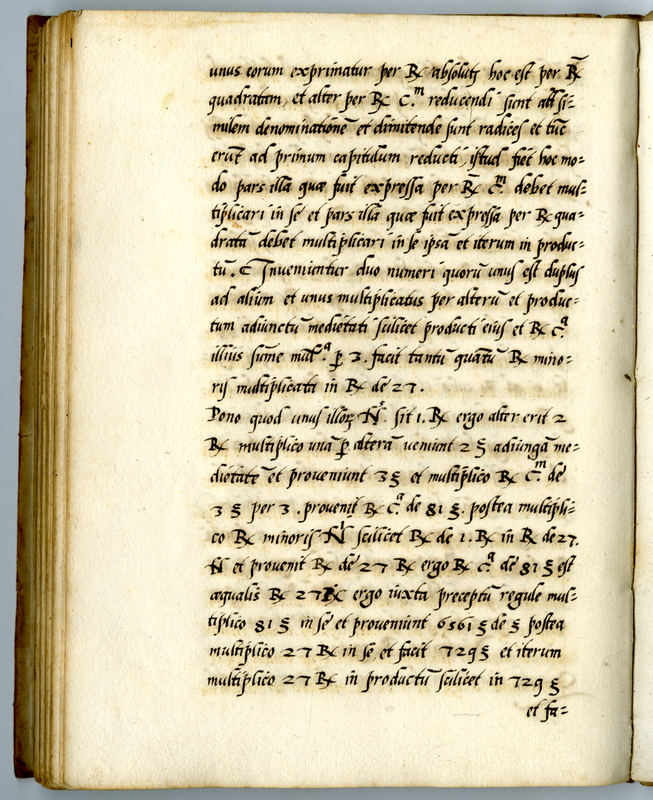 unus eorum exprimatur per ℞ absolutã hoc est per ℞̃
quadratam, et alter per ℞ C.ᵐ reducendi sunt ad si=
milem denominationẽ et dimitendę sunt radices et tũc
erũt ad primum capitulum reducti, istud fiet hoc mo=
do pars illa quæ fuit expressa per ℞ C.ᵐ debet mul=
tiplicari in se et pars illa quæ fuit expressa per ℞ qua=
dratã debet multiplicari in se ipsã et iterum in produc=
tũ. C Inveniuntur duo numeri quorũ unus est duplus
ad alium et unus multiplicatus per alterũ et produc=
tum adiunctũ medietati scilicet producti eius et ℞ C.ᵃ
illius sum̃e mul.ᵃ ꝑ 3. facit tantũ quãtũ ℞ mino=
ris multiplicata in ℞ de 27.
Pono quod unus illoꝝ Ñ. sit 1. ℞ ergo alter erit 2
℞ multiplico unã ꝑ alterã veniunt 2 ʒ adiungã me=
dietatẽ et proveniunt 3 ʒ et multiplico ℞ C.ᵐ de
3 ʒ per 3. provenit ℞ C.ᵃ de 81 ʒ. postea multipli=
co ℞ minoris Ñ scilicet ℞ de 1. ℞ in ℞ de 27.
Ñ et provenit ℞ de 27 ℞ ergo ℞ C.ᵃ de 81 ʒ est
æqualis ℞ 27 ℞ ergo iuxta preceptũ regule mul=
tiplico 81 ʒ in se et proveniunt 6561 ʒ de ʒ postea
multiplico 27 ℞ in se et facit 729 ʒ et iterum
multiplico 27 ℞ in productũ scilicet in 729 ʒ
et fa=